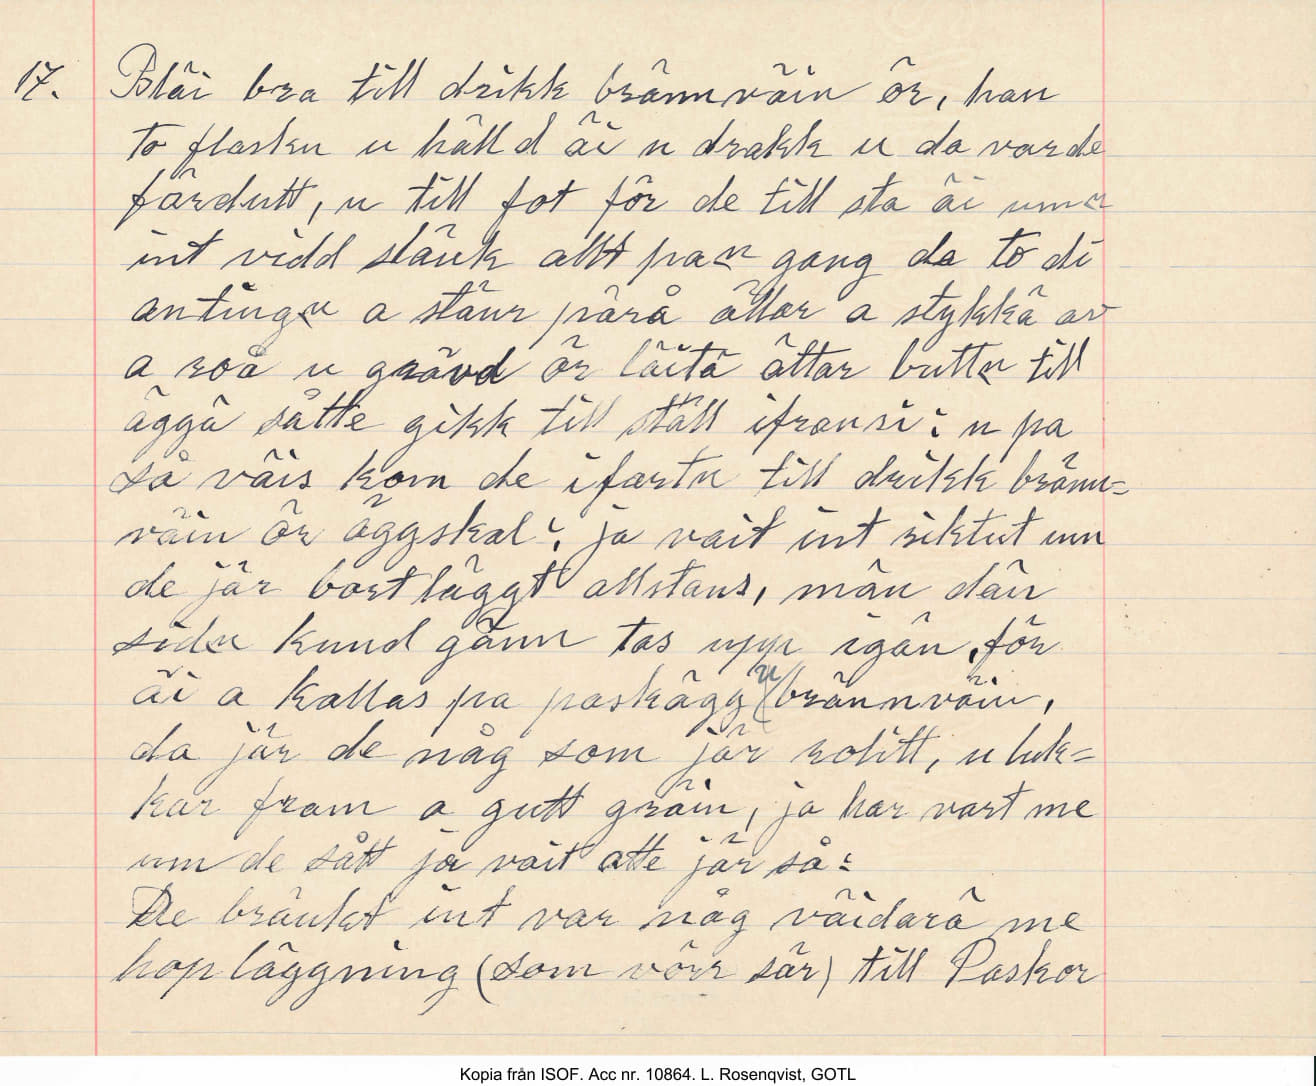 17. Bläi bra till drikk brännväin ör, han
to flasku u hälld äi u drakk u da vardе
färdutt, u till fot för de till sta äi um n
int vidd stäuk allt pa n gang da to di
antingn a stäur pärå ällar a stykkä av
a roå u grävd ör läitä ättar buttn till
äggä såtte gikk till ställ ifransi; u pa
så väis kom de ifartn till drikk bränn=
väin ör äggskal; ja vait int riktut um
de jär bortläggt allstans, män dän
sidn kund gänn tas upp igän, för
äi a kallas pa paskägg u brännväin,
da jär de någ som jär rolitt, u luk=
kar fram a gutt gräin, ja har vart me
um de sått ja vait atte jär så:
De bräukt int var någ väidarä me
hopläggning (som vörr sär) till Paskar
Kopia från ISOF. Acc nr. 10864. L. Rosenqvist, GOTL